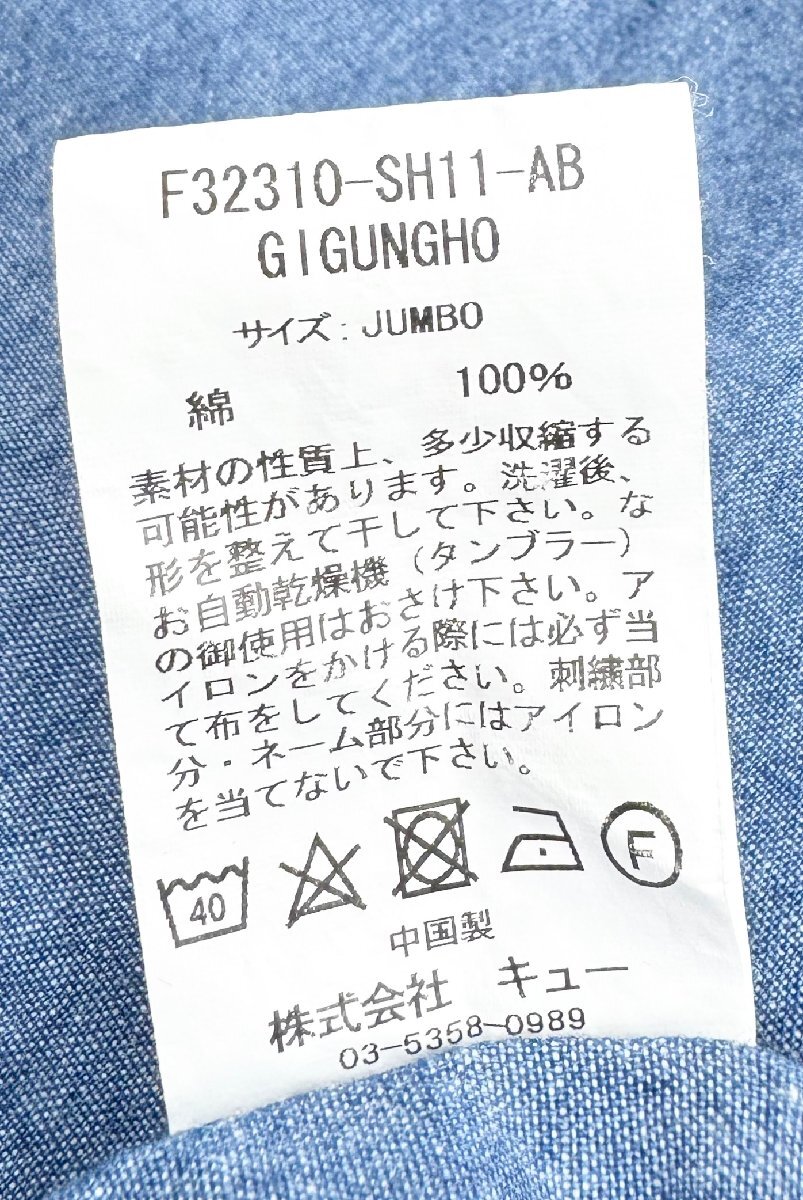 F32310-SH11-AB
GIGUNGHO
サイズ：JUMBO
綿 100%
素材の性質上、多少収縮する
可能性があります。洗濯後、
形を整えて干して下さい。な
お自動乾燥機（タンブラー）
の御使用はおさけ下さい。ア
イロンをかける際には必ず当
て布をしてください。刺繍部
分・ネーム部分にはアイロン
を当てないで下さい。
40
F
中国製
株式会社 キュー
03-5358-0989